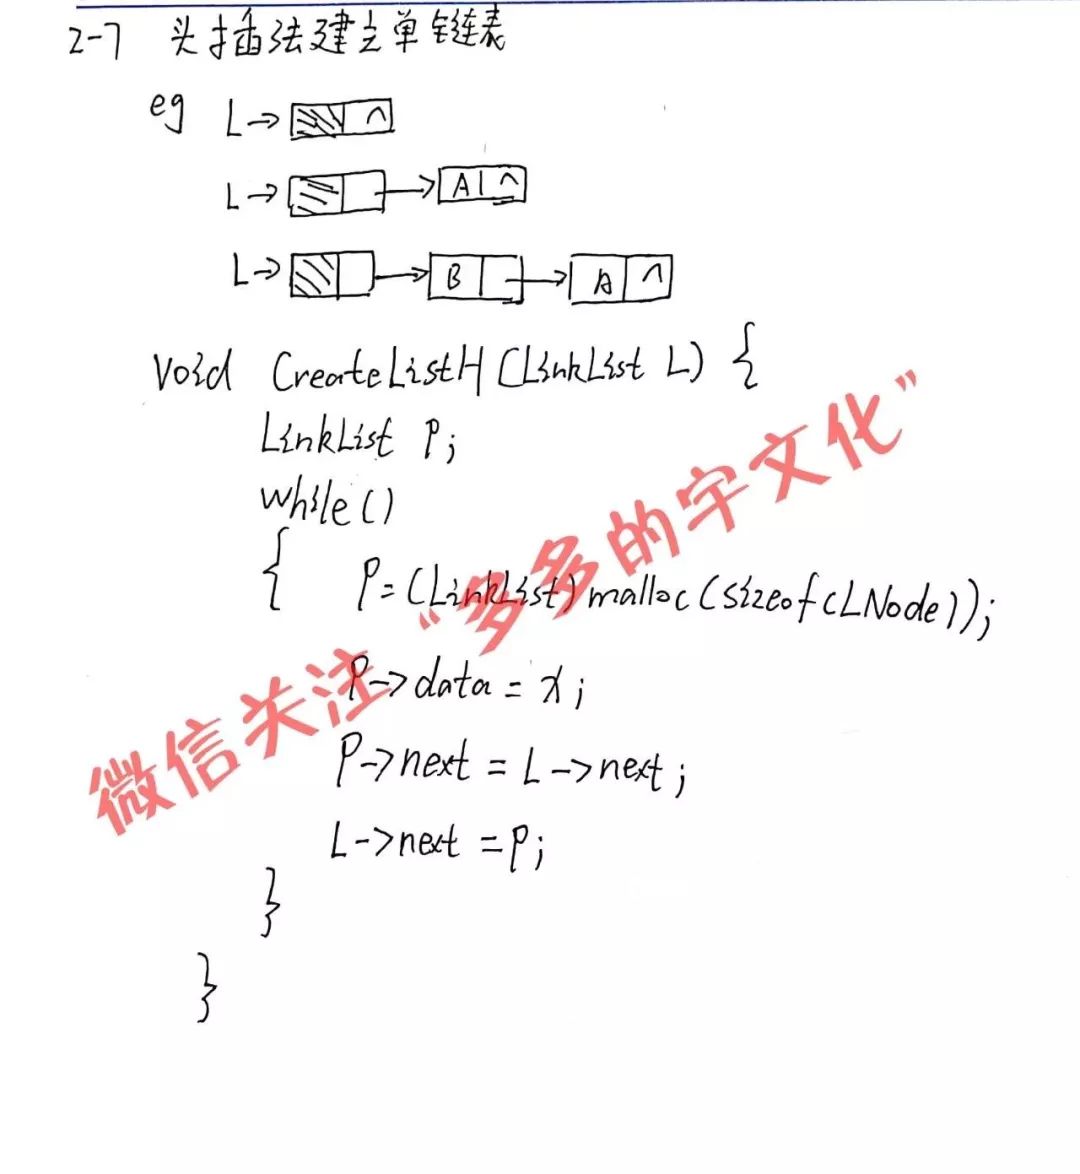 2-7 头插法建立单链表
eg L→ ^
L→ A ^
L→ B A ^
Void CreateListH (LinkList L) {
LinkList P;
while()
{ P=(LinkList)malloc(sizeof(LNode));
P->data = x;
P->next = L->next;
L->next =P;
}
}
微信关注“多多的宇文化”